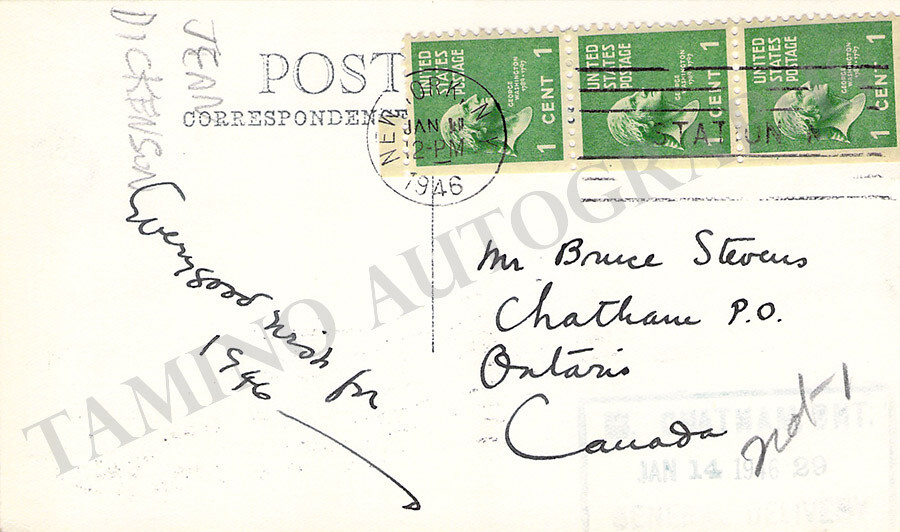 JENN
DICKENSON
POST
CORRESPONDENCE
UNITED STATES POSTAGE
GEORGE WASHINGTON
1789-1797
1 CENT 1
UNITED STATES POSTAGE
GEORGE WASHINGTON
1789-1797
1 CENT 1
UNITED STATES POSTAGE
GEORGE WASHINGTON
1789-1797
1 CENT 1
NEW YORK N
JAN
12-PM
1946
STATION
Every good wish for
1946
Mr Bruce Stevens
Chatham P.O.
Ontario
Canada
not-1
CHATHAM ONT.
JAN 14 1946 29
GENERAL DELIVERY
TAMINO AUTOGRAPHS